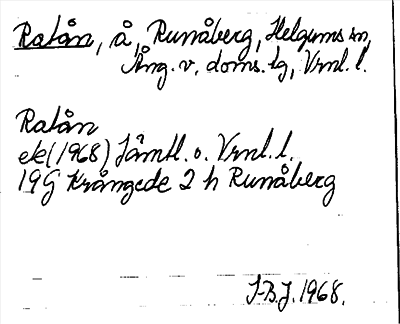 Ratån, å, Runåberg, Helgums sn,
Ång. v. doms. lg, Vrnl. l.
Ratån
ek (1968) Jämtl. o. Vrnl. l.
19G Krångede 2 h Runåberg
J-B.J. 1968.